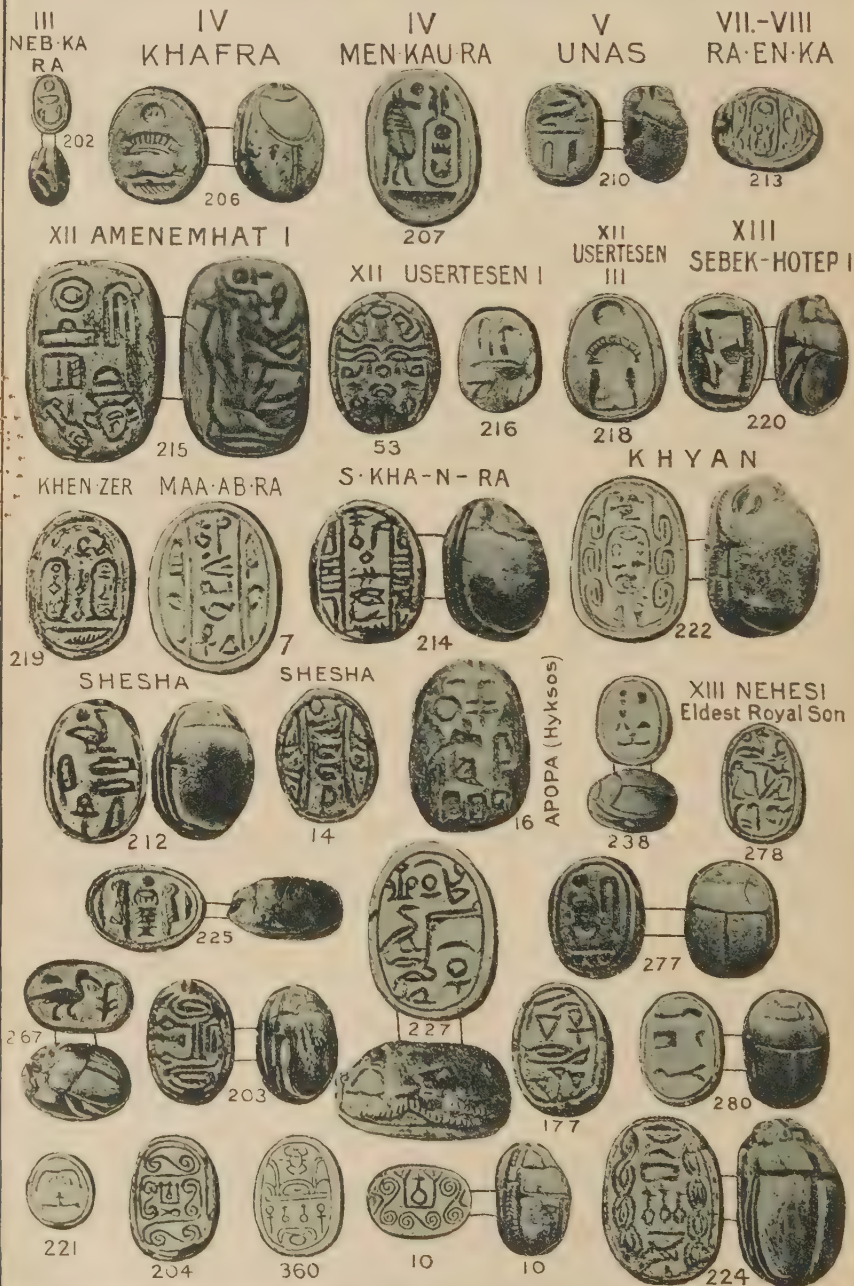 III
NEB·KA
RA
IV
KHAFRA
IV
MEN·KAU·RA
V
UNAS
VII.-VIII
RA·EN·KA
202
206
207
210
213
XII AMENEMHAT I
XII USERTESEN I
XII
USERTESEN
III
XIII
SEBEK-HOTEP I
215
53
216
218
220
KHEN·ZER
MAA·AB·RA
S·KHA-N-RA
KHYAN
219
7
214
222
SHESHA
SHESHA
APOPA (Hyksos)
XIII NEHESI
Eldest Royal Son
212
14
16
238
278
225
227
277
267
203
177
280
221
204
360
10
10
224